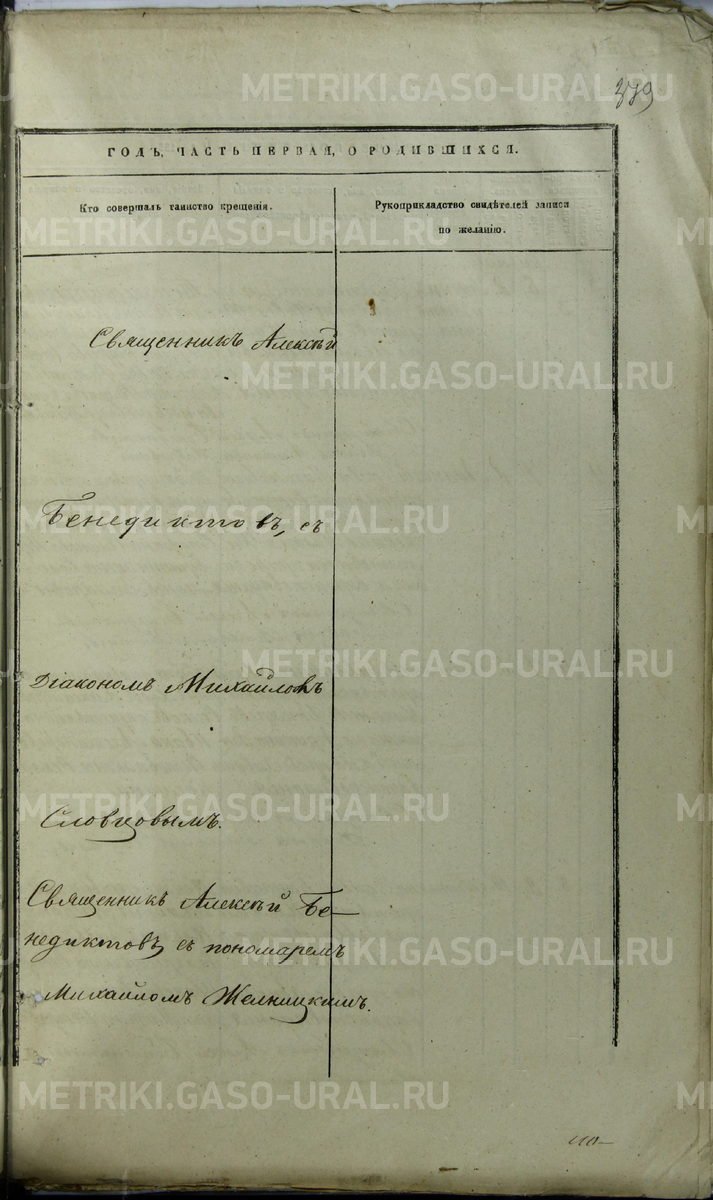 379
ГОДЪ, ЧАСТЬ ПЕРВАЯ, О РОДИВШИХСЯ.
Кто совершалъ таинство крещенія.
Рукоприкладство свидѣтелей записи
по желанію.
Священникъ Алексѣй
Бенедиктовъ, съ
Діакономъ Михайломъ
Словцовымъ.
Священникъ Алексѣй Бе-
недиктовъ съ пономаремъ
Михайломъ Желницкимъ.
METRIKI.GASO-URAL.RU